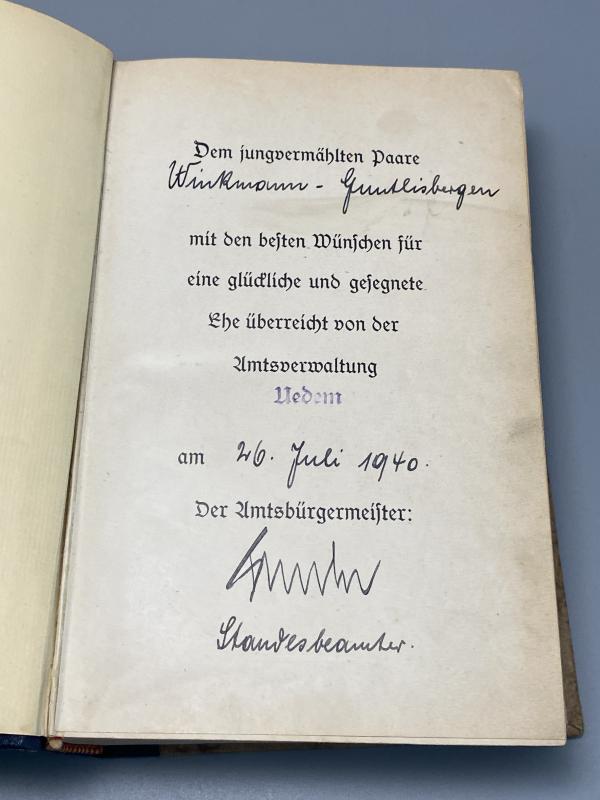 Dem jungvermählten Paare
Winkmann - Guntlisbergen
mit den besten Wünschen für
eine glückliche und gesegnete
Ehe überreicht von der
Amtsverwaltung
Uedem
am 26. Juli 1940.
Der Amtsbürgermeister:
Standesbeamter.